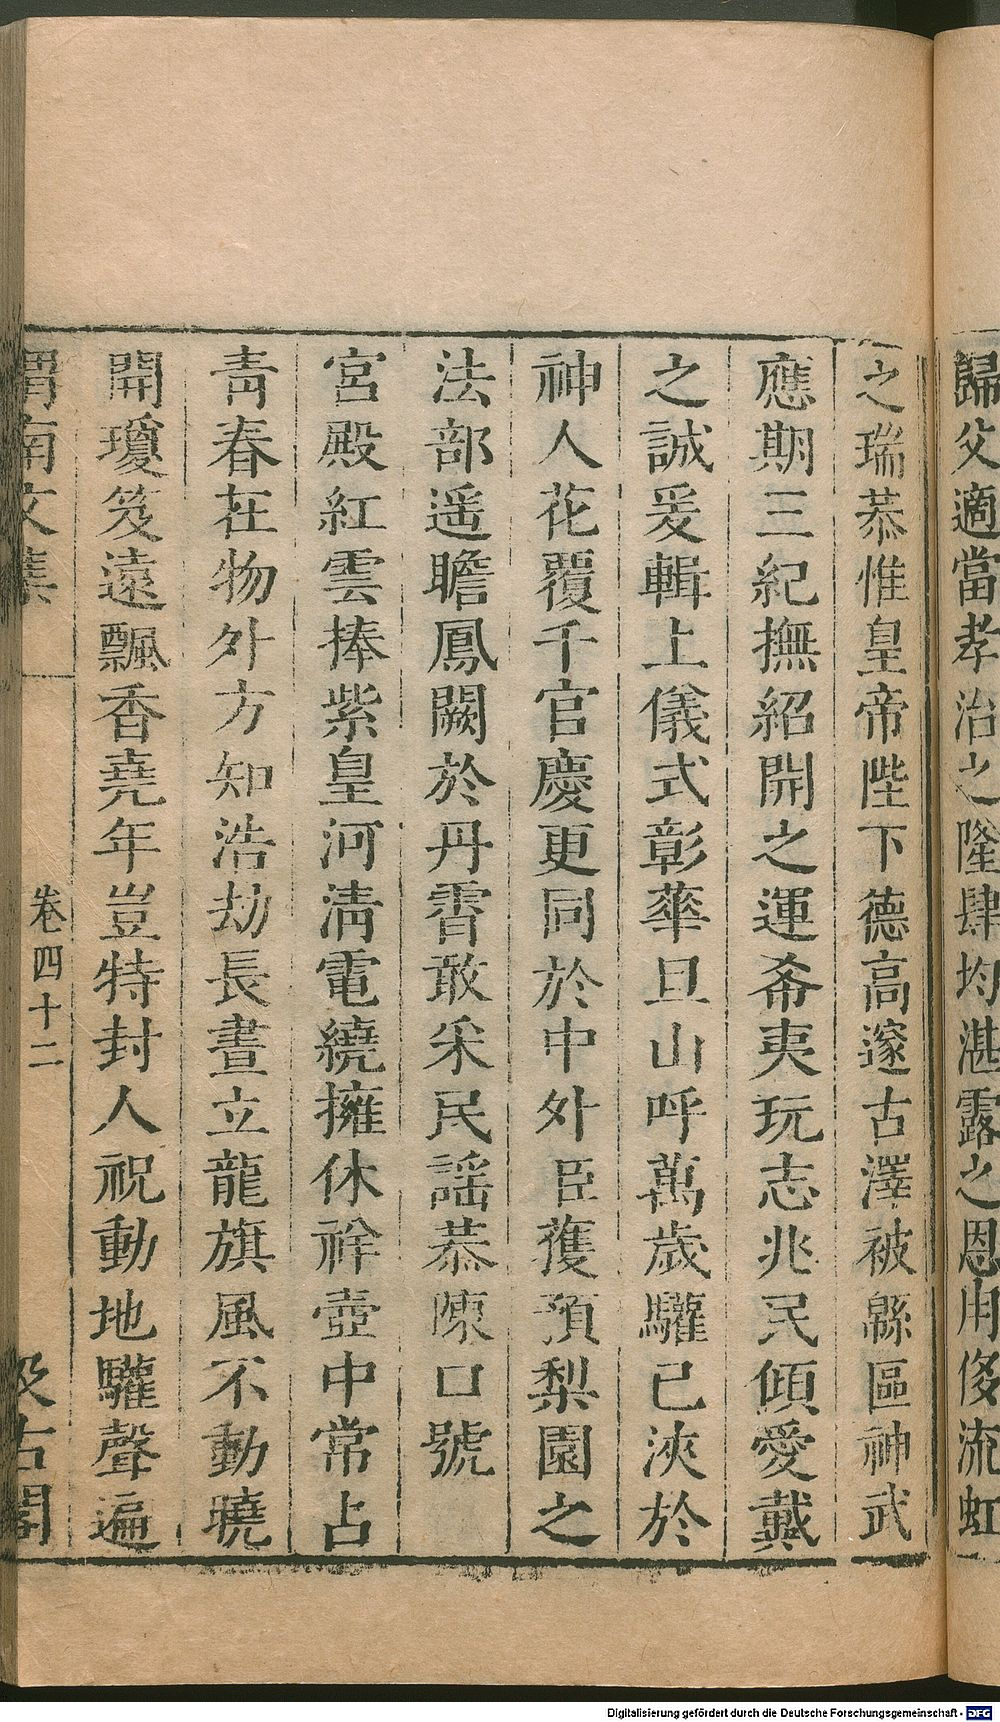 歸父適當孝治之隆肆均湛露之恩用侈流虹
之瑞恭惟皇帝陛下德高邃古澤被緜區神武
應期三紀撫紹開之運希夷玩志兆民傾愛戴
之誠爰輯上儀式彰華旦山呼萬歲驩已浹於
神人花覆千官慶更同於中外臣獲預梨園之
法部遥瞻鳳闕於丹霄敢采民謡恭陳口號
宮殿紅雲捧紫皇河淸電繞擁休祥壺中常占
靑春在物外方知浩劫長晝立龍旗風不動曉
開瓊笈遠飄香堯年豈特封人祝動地驩聲遍
渭南文集 卷四十二 汲古閣
Digitalisierung gefördert durch die Deutsche Forschungsgemeinschaft - DFG